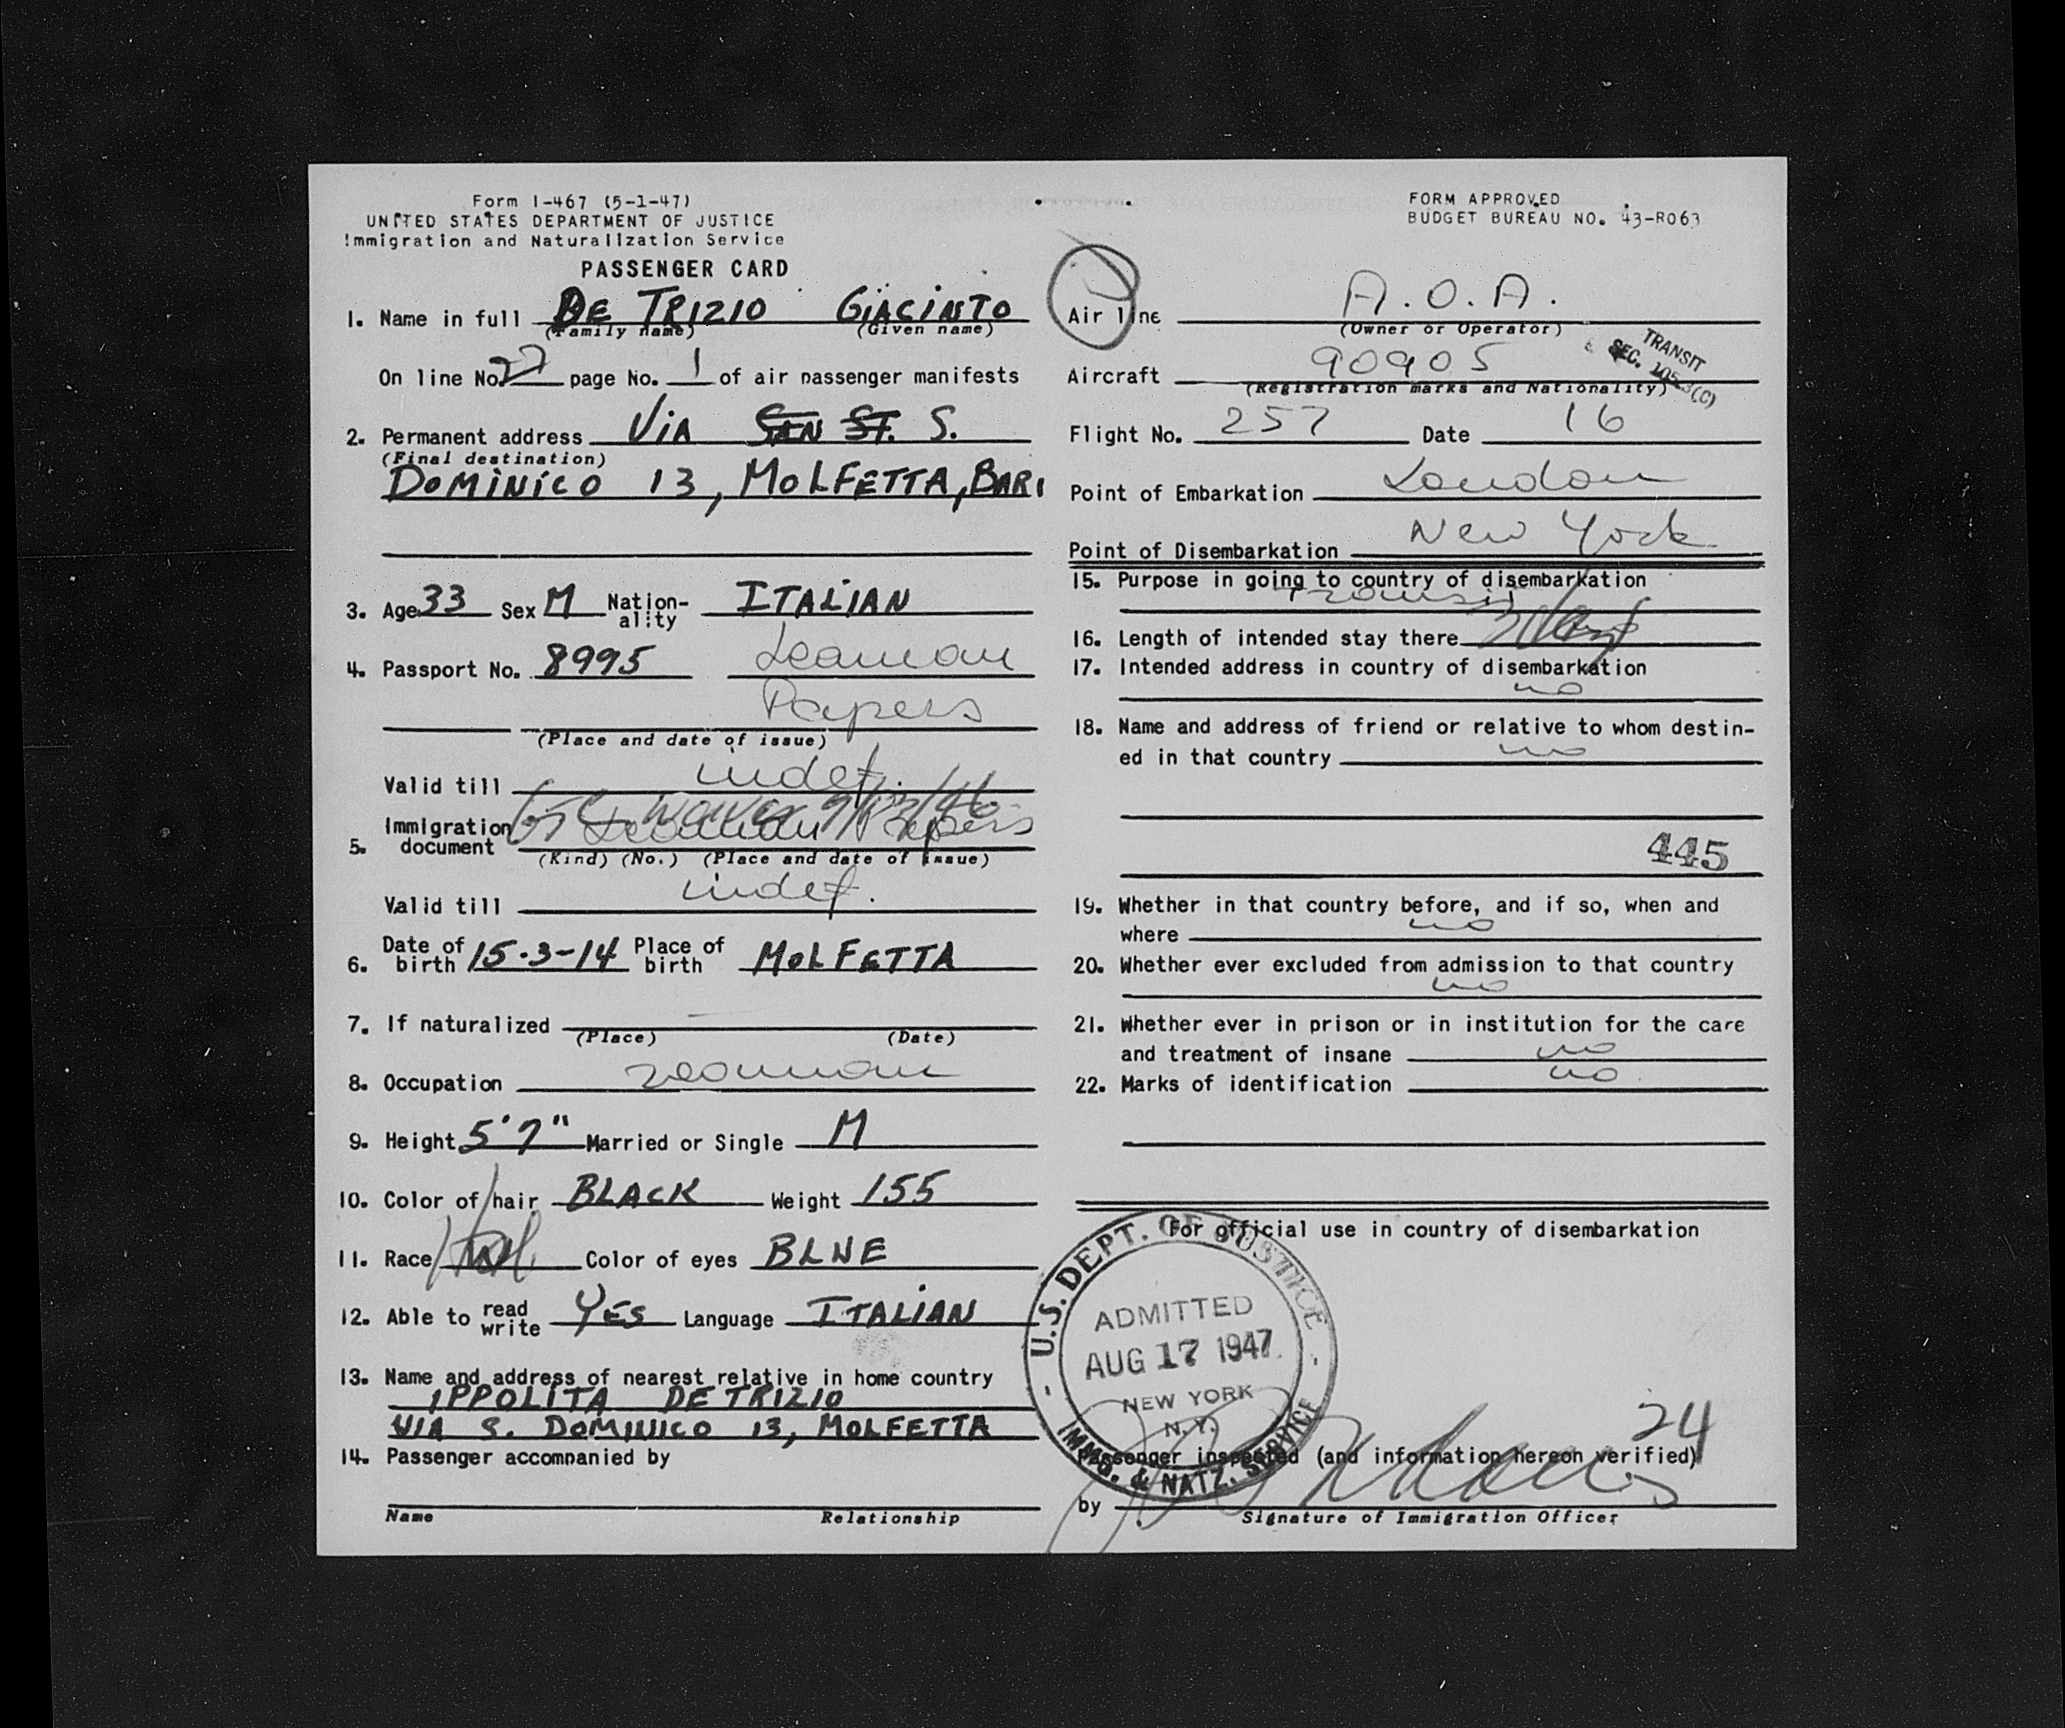 Form I-467 (5-1-47)
UNITED STATES DEPARTMENT OF JUSTICE
Immigration and Naturalization Service
PASSENGER CARD
1. Name in full DE TRIZIO GIACINTO
(Family name) (Given name)
On line No. 27 page No. 1 of air passenger manifests
2. Permanent address VIA SAN ST. S.
(Final destination)
DOMINICO 13, MOLFETTA, BARI
3. Age 33 Sex M Nation-ality ITALIAN
4. Passport No. 8995 Seaman
Papers
(Place and date of issue)
Valid till indef.
5. Immigration document Seaman Papers
(Kind) (No.) (Place and date of issue)
Valid till indef.
6. Date of birth 15-3-14 Place of birth MOLFETTA
7. If naturalized
(Place) (Date)
8. Occupation seaman
9. Height 5'7" Married or Single M
10. Color of hair BLACK Weight 155
11. Race Color of eyes BLNE
12. Able to read write YES Language ITALIAN
13. Name and address of nearest relative in home country
IPPOLITA DE TRIZIO
VIA S. DOMINICO 13, MOLFETTA
14. Passenger accompanied by
Name Relationship
FORM APPROVED
BUDGET BUREAU NO. 43-R063
Air line A.O.A.
(Owner or Operator)
TRANSIT
SEC. 105.3(C)
Aircraft 90905
(Registration marks and Nationality)
Flight No. 257 Date 16
Point of Embarkation London
Point of Disembarkation New York
15. Purpose in going to country of disembarkation
Transit
16. Length of intended stay there
17. Intended address in country of disembarkation
no
18. Name and address of friend or relative to whom destin-
ed in that country no
445
19. Whether in that country before, and if so, when and
where no
20. Whether ever excluded from admission to that country
no
21. Whether ever in prison or in institution for the care
and treatment of insane no
22. Marks of identification no
For official use in country of disembarkation
U.S. DEPT. OF JUSTICE
ADMITTED
AUG 17 1947
NEW YORK
N.Y.
IMMG. & NATZ. SERVICE
24
Passenger inspected (and information hereon verified)
by
Signature of Immigration Officer